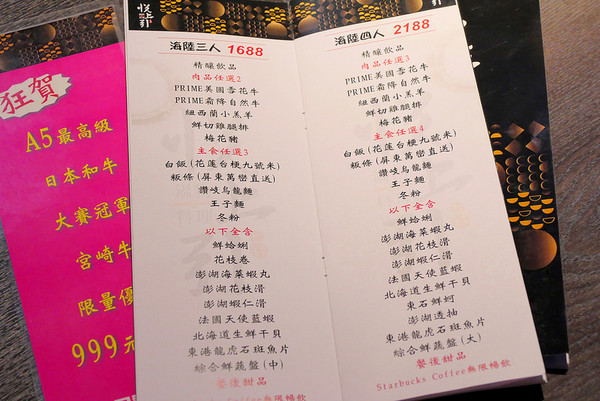 狂賀
A5最高級
日本和牛
大賽冠軍
宮崎牛
限量優
999元
悅
海陸三人 1688
精釀飲品
肉品任選2
PRIME美國雪花牛
PRIME霜降自然牛
紐西蘭小羔羊
鮮切雞腿排
梅花豬
主食任選3
白飯(花蓮台梗九號米)
粄條(屏東萬巒直送)
讚岐烏龍麵
王子麵
冬粉
以下全含
鮮蛤蜊
花枝卷
澎湖海菜蝦丸
澎湖花枝滑
澎湖蝦仁滑
法國天使藍蝦
北海道生鮮干貝
東港龍虎石斑魚片
綜合鮮蔬盤(中)
餐後甜品
Starbucks Coffee無限暢飲
海陸四人 2188
精釀飲品
肉品任選3
PRIME美國雪花牛
PRIME霜降自然牛
紐西蘭小羔羊
鮮切雞腿排
梅花豬
主食任選4
白飯(花蓮台梗九號米)
粄條(屏東萬巒直送)
讚岐烏龍麵
王子麵
冬粉
以下全含
鮮蛤蜊
澎湖花枝滑
澎湖蝦仁滑
法國天使藍蝦
北海道生鮮干貝
東石鮮蚵
澎湖透抽
東港龍虎石斑魚片
綜合鮮蔬盤(大)
餐後甜品
Starbucks Coffee無限暢飲